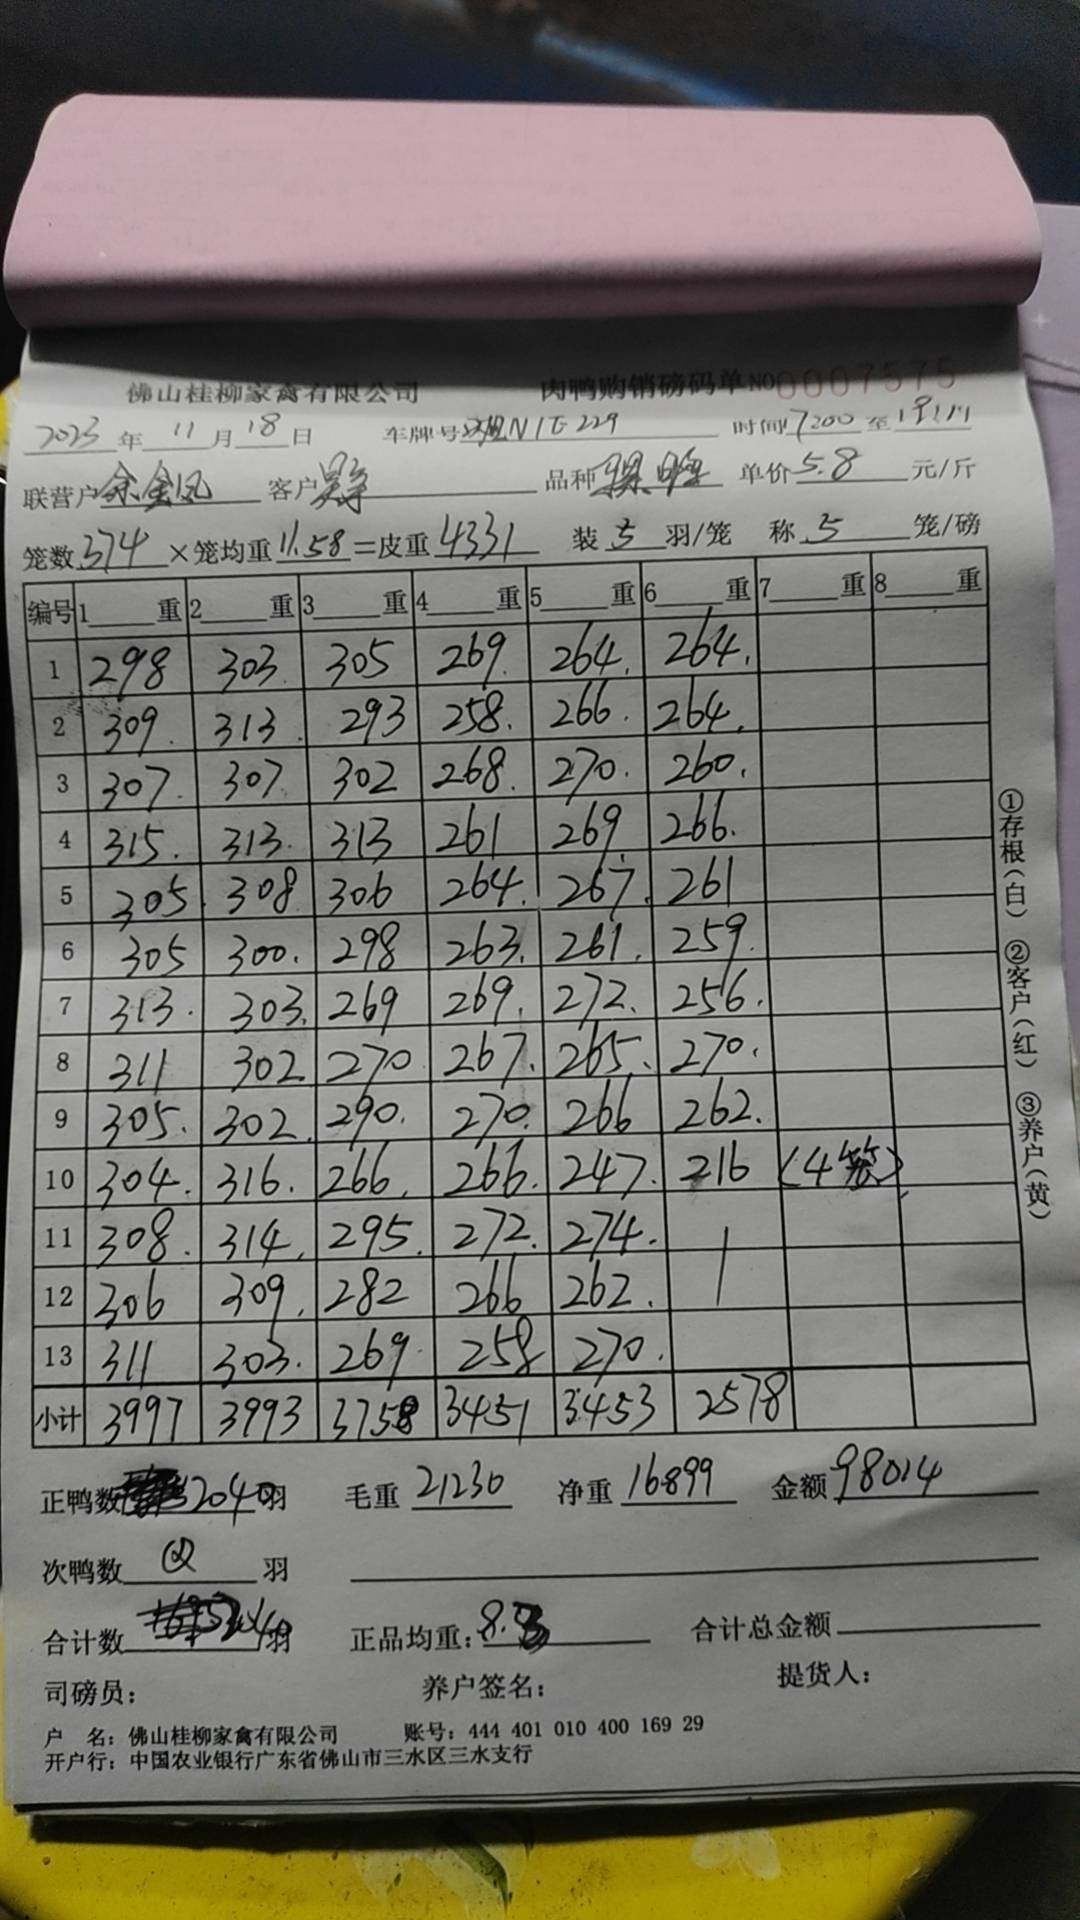 佛山桂柳家禽有限公司 肉鸭购销磅码单 NO 0007575
2023年 11月 18日 车牌号 N1E229 时间 7200 至
联营户 余金凤 客户 品种 单价 5.8 元/斤
笼数 374 ×笼均重 11.58 =皮重 4331 装 5 羽/笼 称 5 笼/磅
编号 1 重 2 重 3 重 4 重 5 重 6 重 7 重 8 重
1 298 303. 305 269. 264. 264.
2 309. 313. 293 258. 266. 264.
3 307. 307. 302 268. 270. 260.
4 315. 313. 313 261 269 266.
5 305. 308 306 264. 267. 261
6 305 300. 298 263. 261. 259.
7 313. 303. 269 269. 272. 256.
8 311 302 270 267. 265. 270.
9 305. 302. 290. 270. 266 262.
10 304. 316. 266. 266. 247. 216 (4笼).
11 308. 314. 295. 272. 274.
12 306 309. 282 266 262.
13 311 303. 269. 258 270.
小计 3997 3993 3758 3451 3453 2578
正鸭数 2040 羽 毛重 21230 净重 16899 金额 98014
次鸭数 羽
合计数 羽 正品均重: 8.3 合计总金额
司磅员: 养户签名: 提货人:
户 名: 佛山桂柳家禽有限公司 账号: 444 401 010 400 169 29
开户行: 中国农业银行广东省佛山市三水区三水支行
①存根(白) ②客户(红) ③养户(黄)